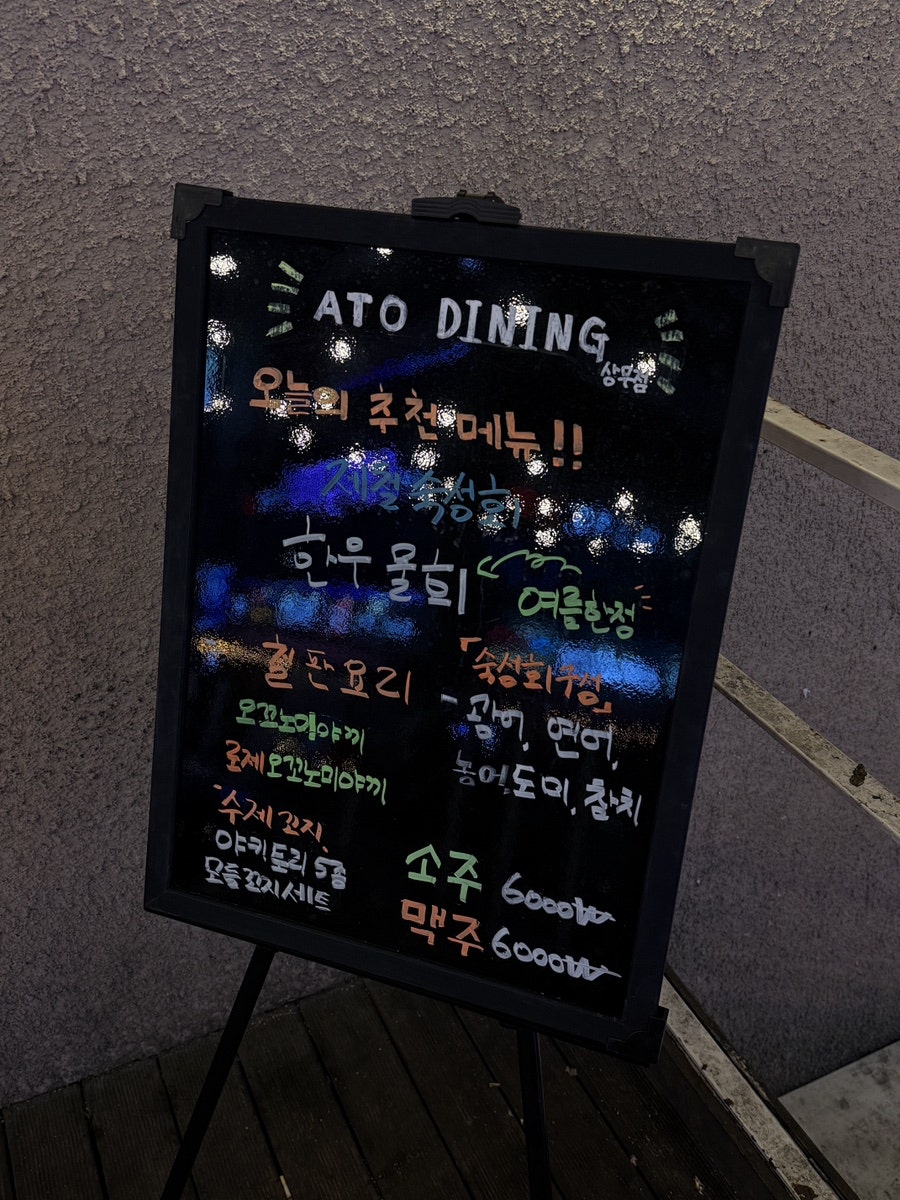 ATO DINING
상무점
오늘의 추천 메뉴!!
제철 숙성회
한우 물회
여름한정
철판요리
오꼬노미야끼
로제 오꼬노미야끼
수제꼬지
야키토리 5종
모듬꼬지세트
「숙성회구성」
- 광어, 연어,
농어, 도미, 참치
소주 6000₩
맥주 6000₩